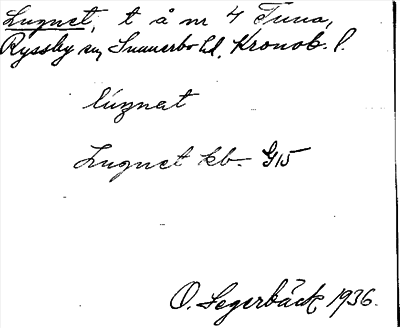 Lugnet, t å nr 4 Tuna,
Ryssby sn, Sunnerbo hd, Kronob. l.
lúgnat
Lugnet kb. G15
O. Segerbäck 1936.